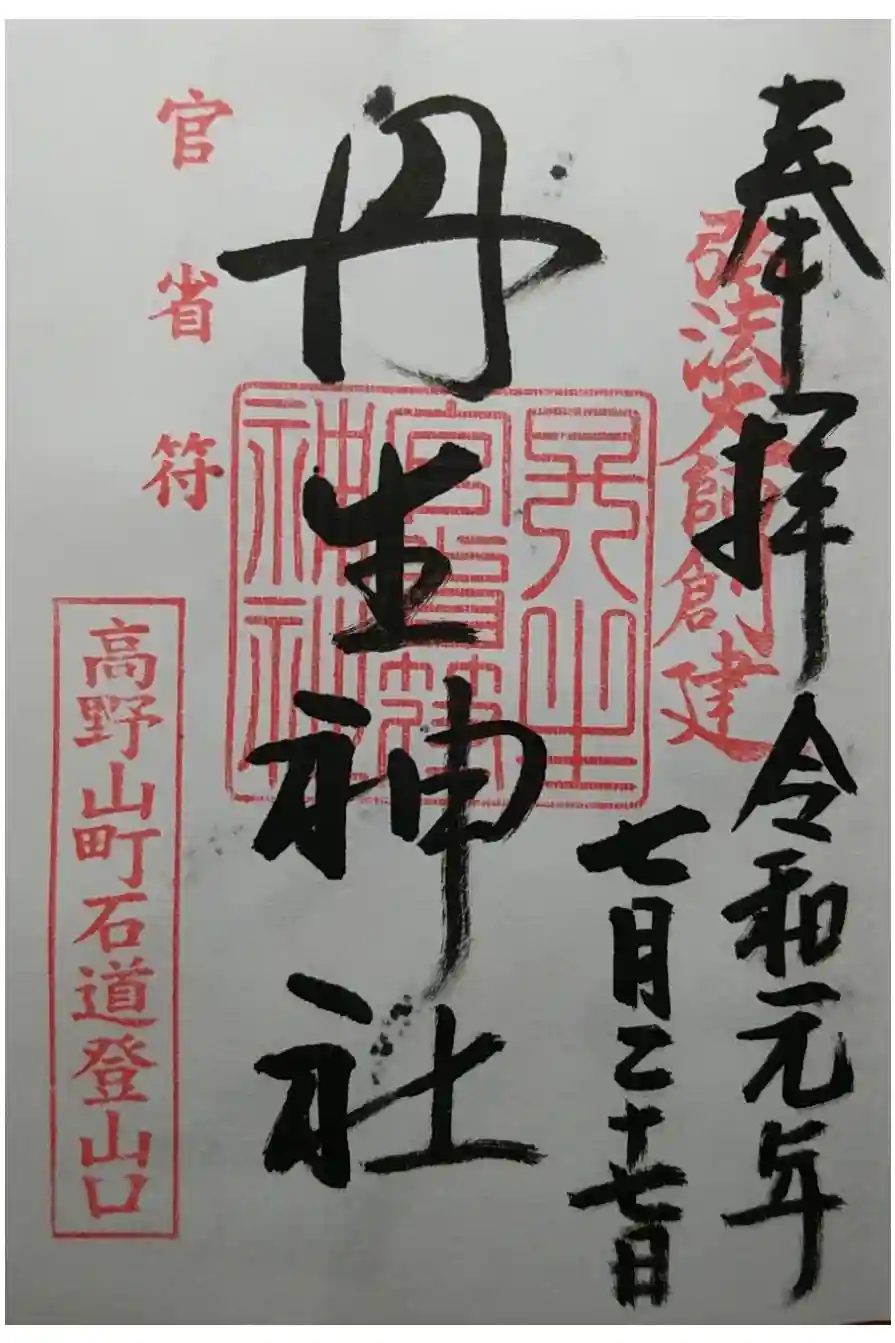 奉拝 令和元年
弘法大師創建
七月二十七日
丹生神社
丹生
官省符
神社
官省符
高野山町石道登山口